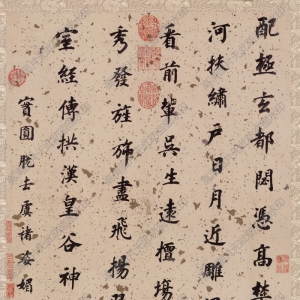 配極玄都閟憑高禁
河扶繡戶日月近雕
看前輩吳生遠擅場
秀發旌旆盡飛揚翠
室經傳拱漢皇谷神
實圓脫去虞褚姿媚